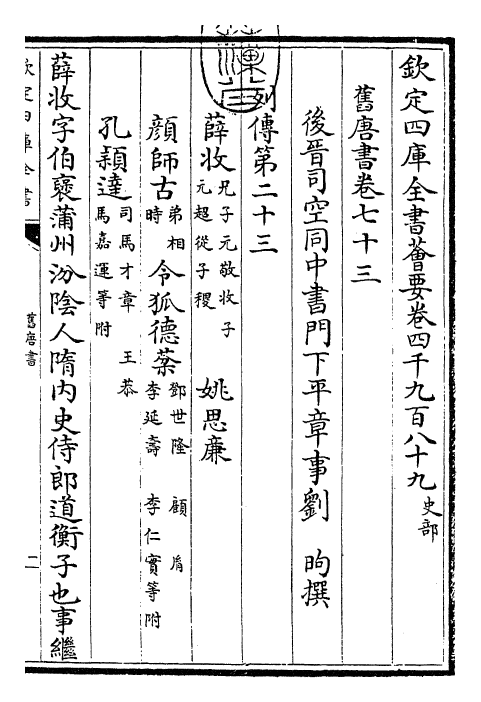 欽定四庫全書薈要卷四千九百八十九 史部
舊唐書卷七十三
後晉司空同中書門下平章事劉 昫撰
列傳第二十三
薛收 兄子元敬 收子元超 從子稷 姚思廉
顔師古 弟相時 令狐德棻 鄧世隆 顧𦙍 李延壽 李仁實等附
孔穎達 司馬才章 王恭 馬嘉運等附
薛收字伯褒蒲州汾陰人隋内史侍郎道衡子也事繼
欽定四庫全書
舊唐書